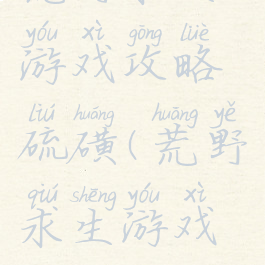 yóu xì gōng lüè
游戏攻略
liú huáng huāng yě
硫磺(荒野
qiú shēng yóu xì
求生游戏